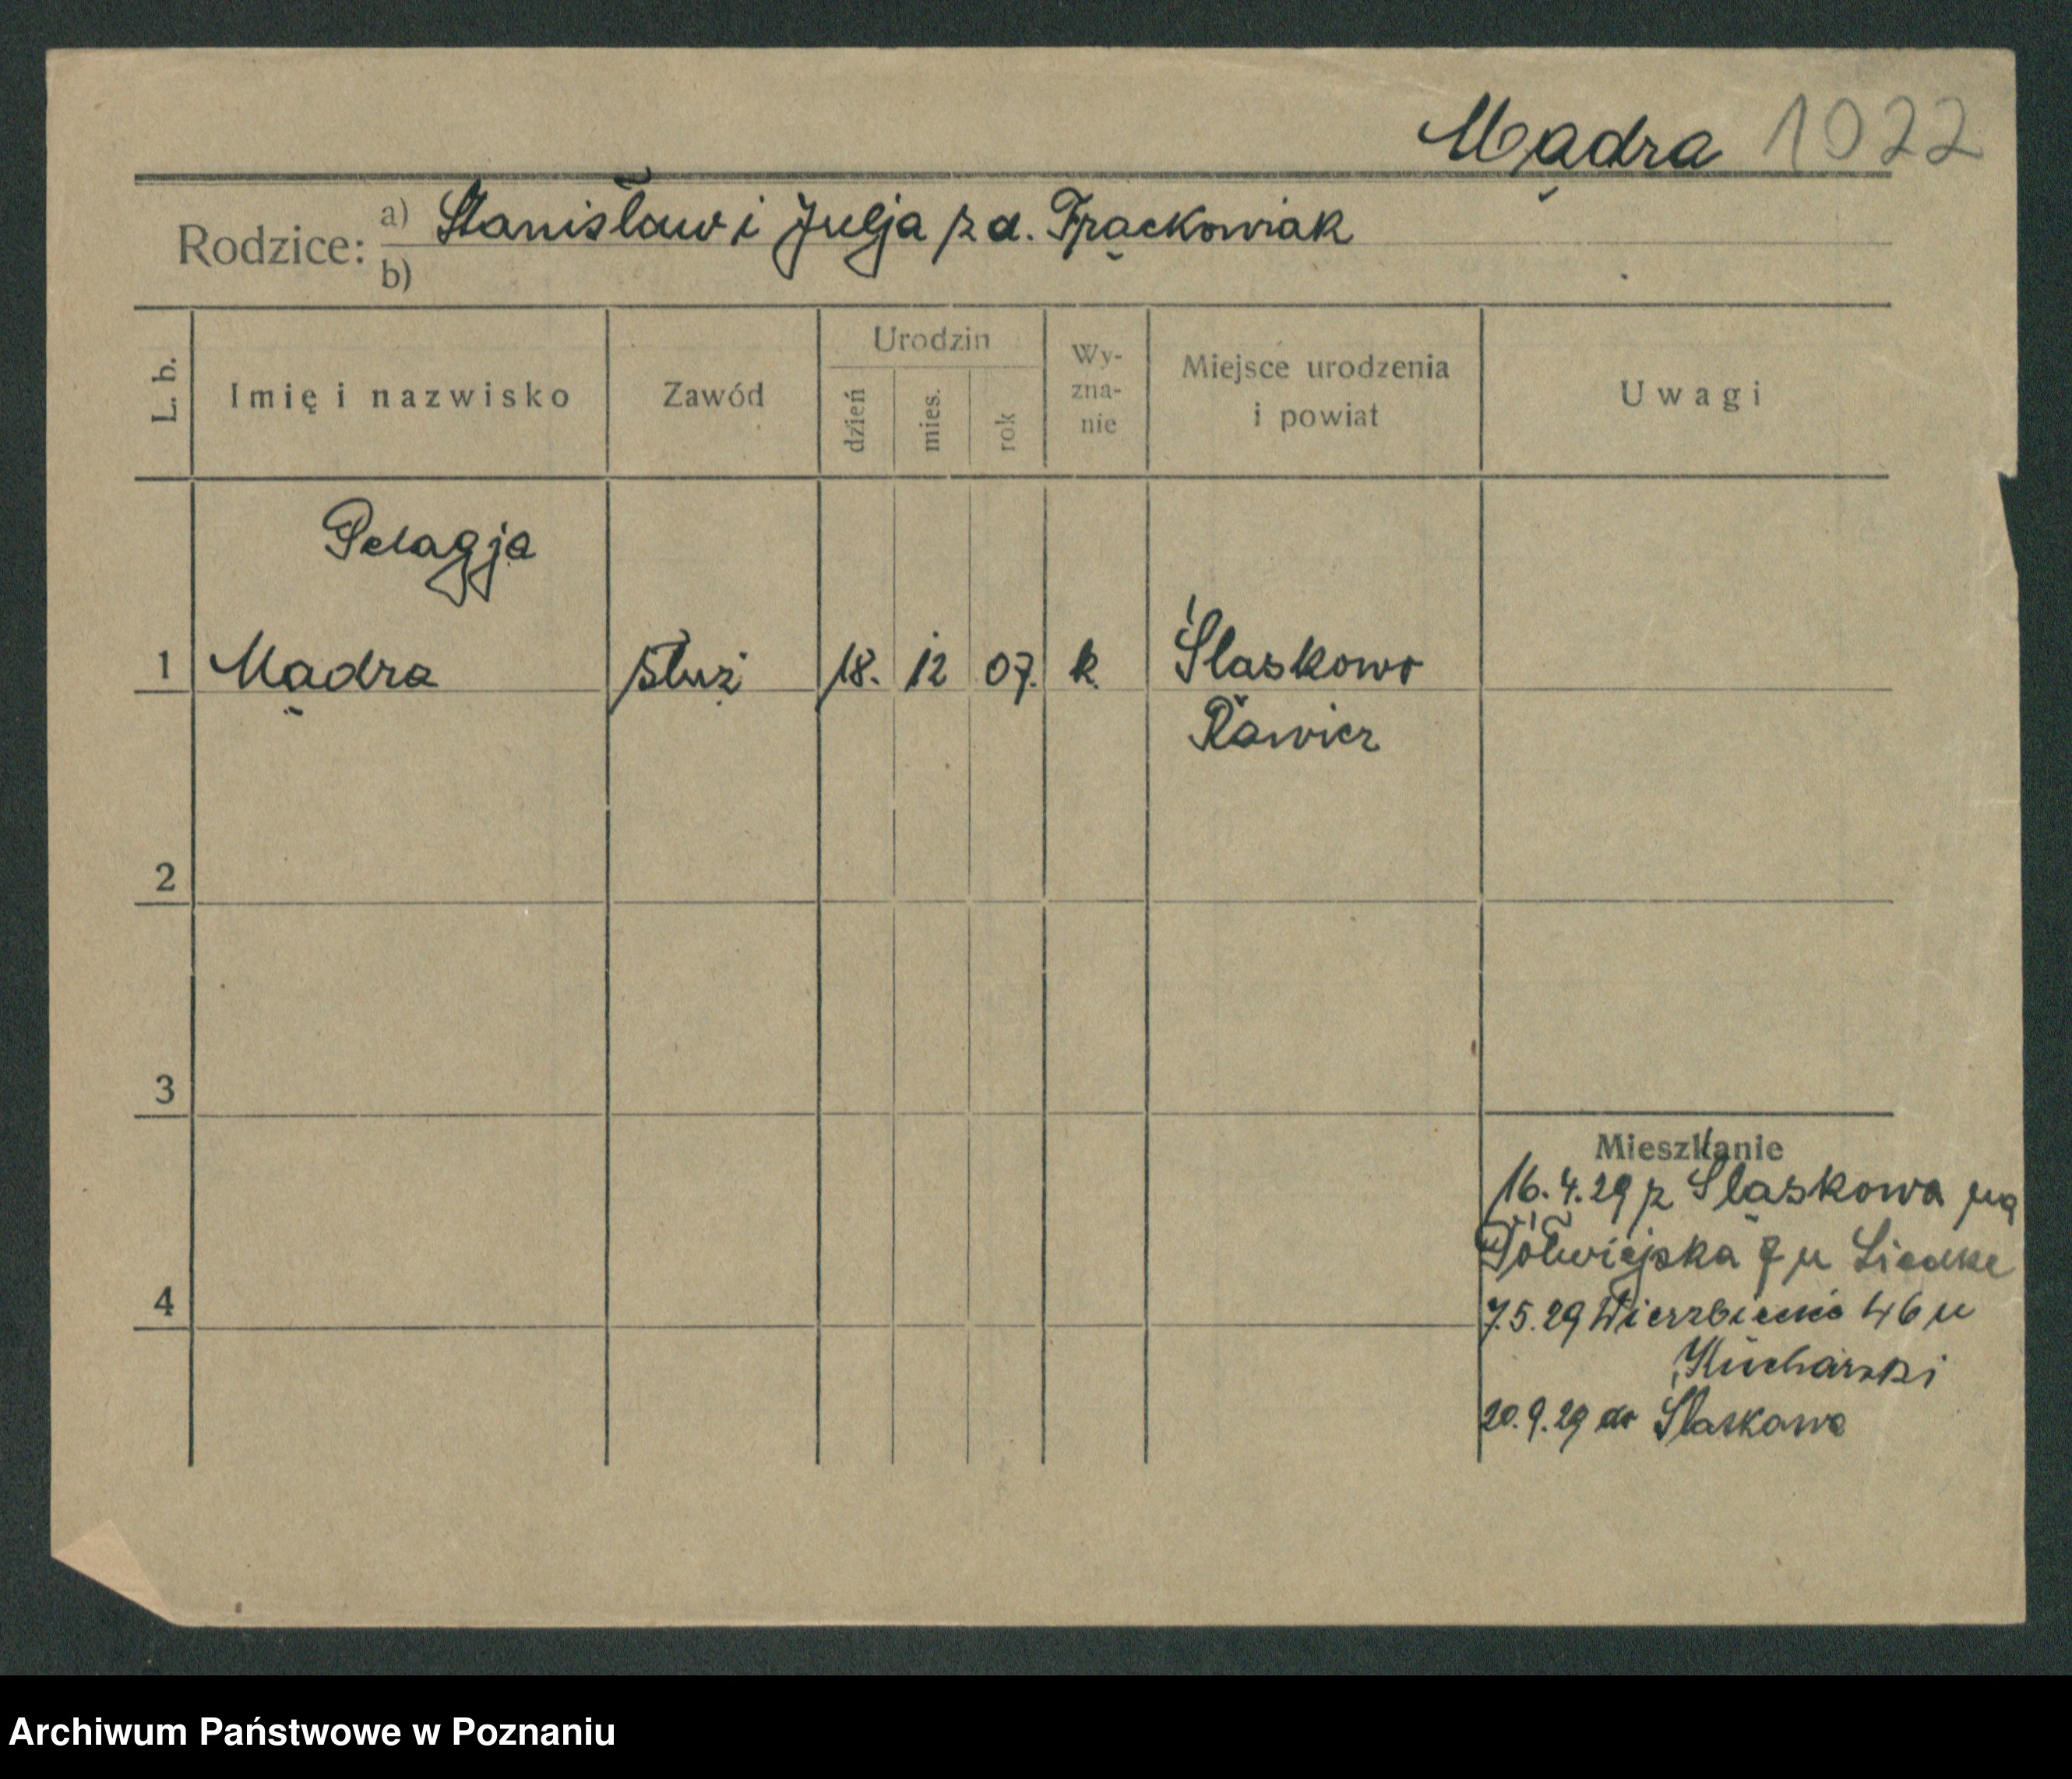 Mądra 1022
Rodzice: a) Stanisław i Julja z d. Frąckowiak
b)
L. b.
Imię i nazwisko
Zawód
Urodzin
dzień
mies.
rok
Wy-
zna-
nie
Miejsce urodzenia
i powiat
Uwagi
Pelagja
1 Mądra służ 18. 12 07. k. Śląskowo
Rawicz
2
3
Mieszkanie
16.4.29 z Śląskowa na
Półwiejska 7 u Liedke
4
7.5.29 Wierzbięcie 46 u
Kucharski
20.9.29 do Slaskowo
Archiwum Państwowe w Poznaniu